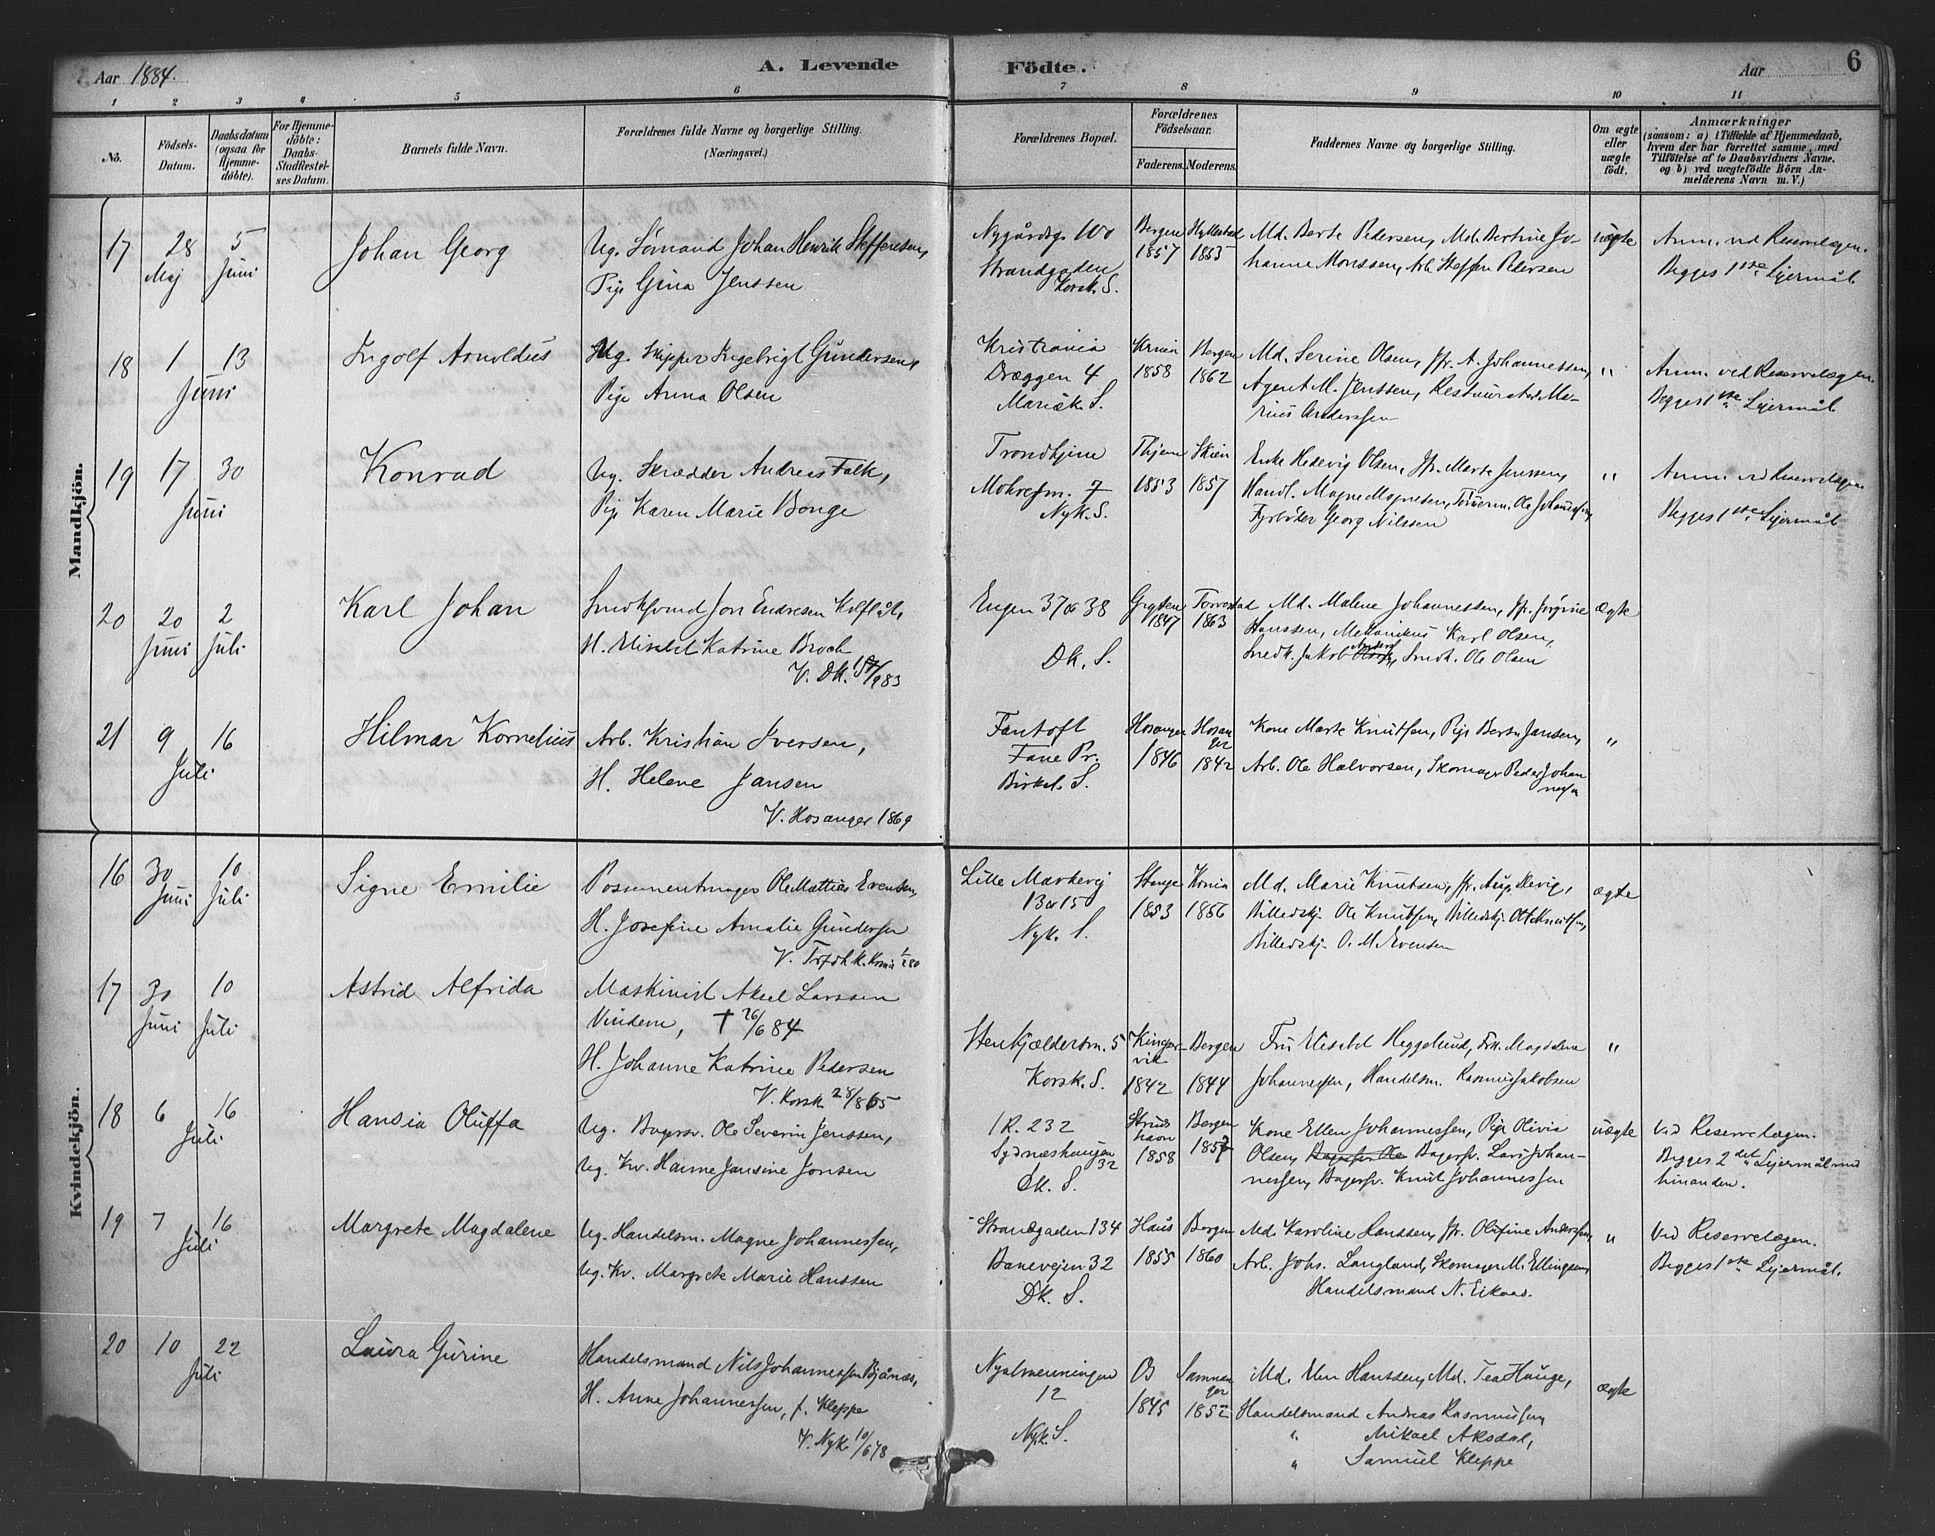 Aar 1884.
A. Levende Födte.
Aar
6
1 2 3 4 5 6 7 8 9 10 11
No.
Födsels-Datum.
Daabsdatum (ogsaa för Hjemme-döbte).
For Hjemme-döbte: Daabs-Stadfæstel-ses Datum.
Barnets fulde Navn.
Forældrenes fulde Navne og borgerlige Stilling.
(Næringsvei.)
Forældrenes Bopæl.
Forældrenes Födselsaar.
Faderens. Moderens.
Faddernes Navne og borgerlige Stilling.
Om ægte eller uægte födt.
Anmærkninger
(saasom: a) i Tilfælde af Hjemmedaab, hvem der har forrettet samme, med Tilföielse af to Daabsvidners Navne. og b) ved uægtefödte Börn An-melderens Navn m. V.)
Mandkjön.
17 28 Maj 5 Juni
Johan Georg
Ug. Sømand Johan Henrik Steffensen,
Pige Gina Jenssen
Nygårdsg. 100
Strandgaden
Korsk. S.
Bergen 1857
Hyllestad 1853
Md. Berte Pedersen, Md. Bertine Jo-
hanne Monssen, Arb. Steffen Pedersen
uægte
Anm. ved Reservelægen.
Begges 1ste Lejermål
18 1 13 Juni
Ingolf Arnoldus
Ug. Skipper Ingebrigt Gundersen,
Pige Anna Olsen
Kristiania
Dræggen 4
Mariek. S.
Krnia 1858
Bergen 1862
Md. Serine Olsen, Jfr. A. Johannessen,
Agent M. Jenssen, Restauratør Ma-
rius Anderssen
"
Anm. ved Reservelægen
Begges 1ste Lejermål
19 17 30 Juni
Konrad
Ug. Skrædder Andreas Falk,
Pige Karen Marie Bonge
Trondhjem
7
Nyk. S.
Thjem 1853
Skien 1857
Enke Hedevig Olsen, Jfr. Marte Jenssen,
Handl. Magne Magnesen, Ole Johannessen,
Fyrbøder Georg Nilssen
"
Anm. ved Reservelægen
Begges 1ste Lejermål
20 20 Juni 2 Juli
Karl Johan
Snedkersvend Jon Endresen
H. Elisabet Katrine Broch
V. Dk.
Engen 37 & 38
Dk. S.
1847
Torvestad 1863
Md. Malene Johannessen, Jfr. Jørgine
Hanssen, Mekanikus Karl Olsen,
Snedk. Jakob Snedk. Ole Olsen
ægte
21 9 16 Juli
Hilmar Kornelius
Arb. Kristian Iversen,
H. Helene Jansen
V. Hosanger 1869
Fantoft
Fane Pr.
Birkel. S.
Hosanger 1846
Hosanger 1842
Kone Marte Knutsen, Pige Berta Jansen,
Arb. Ole Halvorsen, Skomager Peder Johannessen
"
Kvindekjön.
16 30 Juni 10 Juli
Signe Emilie
Possementmager Ole Mattias Evensen,
H. Josefine Amalie Gundersen
Lille Markevej
13 & 15
Nyk. S.
Stange 1853
Krnia 1856
Md. Marie Knutsen, Jfr. Aug. Devig,
Billedskj. Ole Knutsen, Billedskj. Knutsen,
Billedskj. O. M. Evensen
ægte
17 30 Juni 10 Juli
Astrid Alfrida
Maskinist Aksel Larssen
Vindem, † 26/6 84
H. Johanne Katrine Pedersen
V. Korsk. 28/8 65
Stenkjælderm. 5
Korsk. S.
Kingservik 1842
Bergen 1844
Fru Elisabet Heggelund, Frk. Magdalena
Johannessen, Handelsm. Rasmus Jakobsen
"
18 6 16 Juli
Hansia Oluffa
Ug. Bagersv. Ole Severin Jenssen,
Ug. Kv. Hanne Jansine Jonsen
1 R. 232
Sydneshaugen
32
Dk. S.
1858
Bergen 1857
Kone Ellen Johannessen, Pige Olivia
Olsen, Bagersv. Ole Bagersv. Lars Johan-
nessen, Bagersv. Knut Johannessen
uægte
Ved Reservelægen.
Begges 2det Lejermål med
hinanden.
19 7 16 Juli
Margrete Magdalene
Ug. Handelsm. Magne Johannessen,
Ug. Kv. Margrete Marie Hanssen
Strandgaden 134
Banevejen 32
Dk. S.
Haus 1855
Bergen 1860
Md. Karoline Hanssen, Jfr. Olefine Anderssen,
Arb. Johs. Langland, Skomager M. Ellingsen,
Handelsmand N. Eikaas.
"
Ved Reservelægen.
Begges 1ste Lejermål.
20 10 22 Juli
Laura Gurine
Handelsmand Nils Johannessen Bjånæs,
H. Anne Johannessen, f. Kleppe
V. Nyk. 10/6 78
Nyalmenningen
12
Nyk. S.
Os 1845
Samnanger 1852
Md. Hanssen, Md. Tea Hauge,
Handelsmand Andreas Rasmussen,
" Mikael Aksdal,
" Samuel Kleppe
ægte